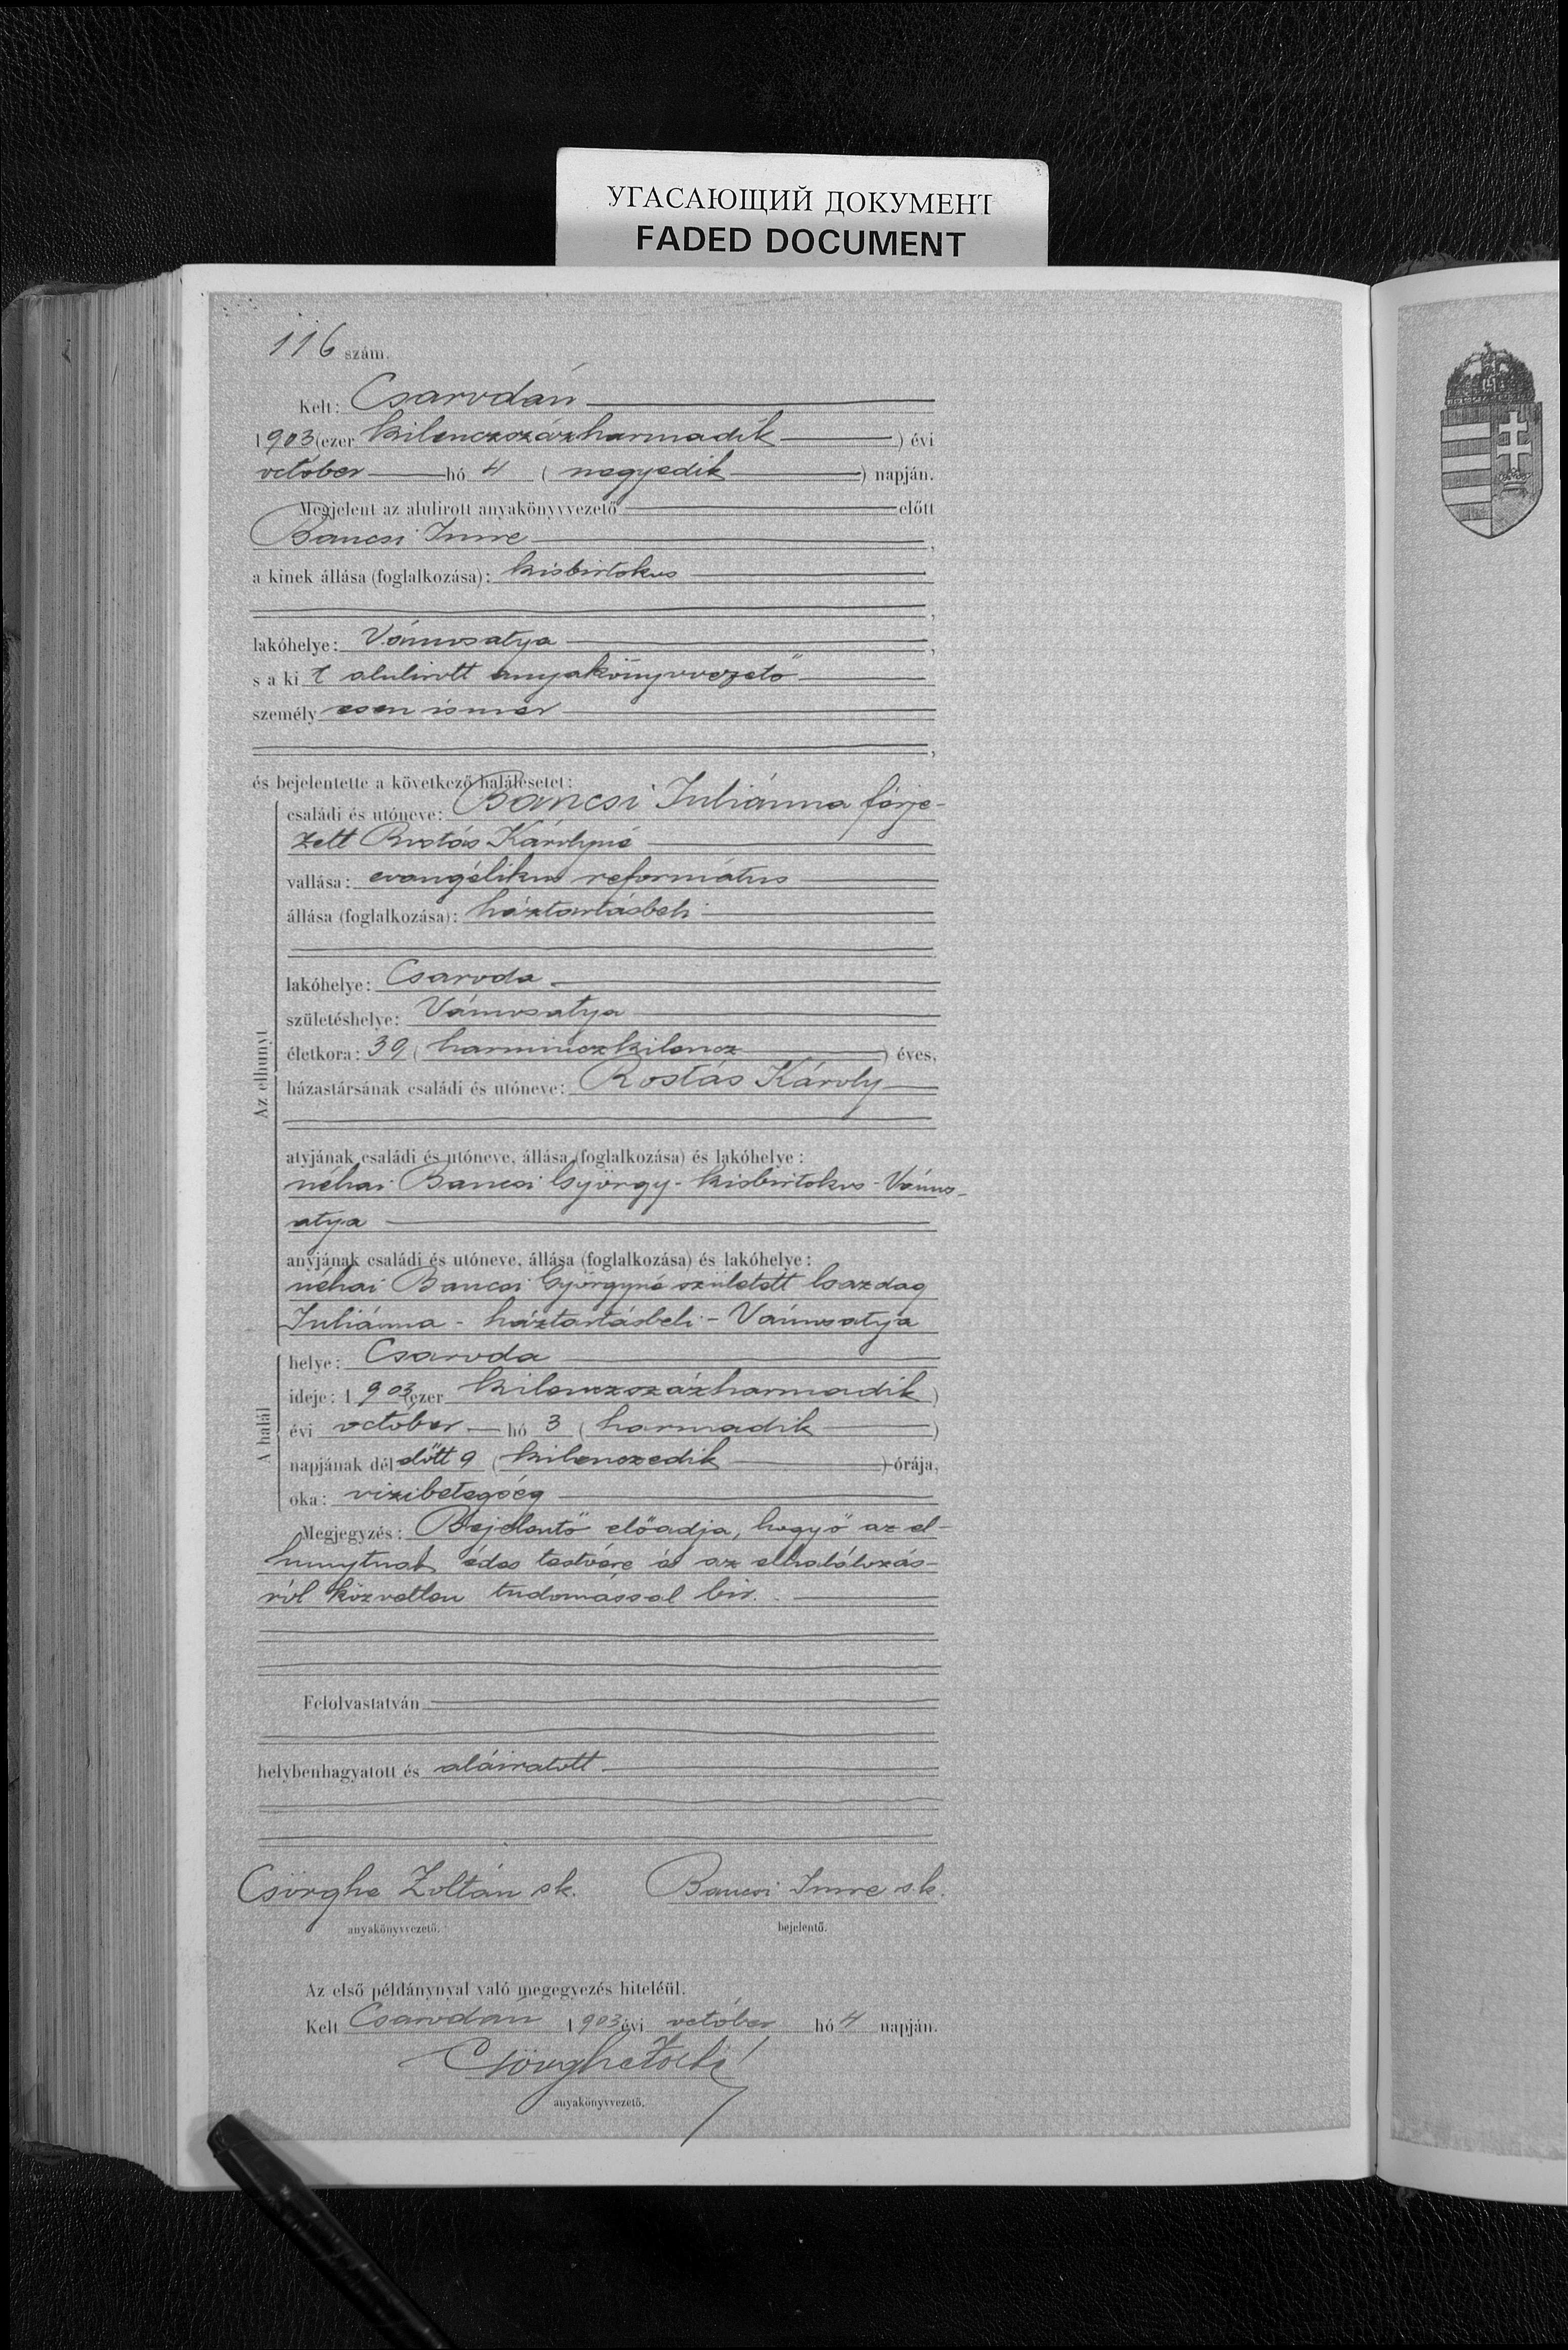 УГАСАЮЩИЙ ДОКУМЕНТ
FADED DOCUMENT
116 szám.
Kelt: Csarodán
1903 (ezer kilenczszázharmadik) évi
october hó 4 (negyedik) napján.
Megjelent az alulirott anyakönyvvezető előtt
Bancsi Imre,
a kinek állása (foglalkozása): kisbirtokos
,
lakóhelye: Vámosatya,
s a ki t alulirott anyakönyvvezető
személyesen ismer
,
és bejelentette a következő halálesetet:
családi és utóneve: Bancsi Juliánna férje-
zett Rostás Károlyné
vallása: evangélikus református
állása (foglalkozása): háztartásbeli
lakóhelye: Csaroda
születéshelye: Vámosatya
Az elhunyt
életkora: 39 (harminczkilencz) éves,
házastársának családi és utóneve: Rostás Károly
atyjának családi és utóneve, állása (foglalkozása) és lakóhelye:
néhai Bancsi György - kisbirtokos - Vámos-
atya
anyjának családi és utóneve, állása (foglalkozása) és lakóhelye:
néhai Bancsi Györgyné született
Juliánna - háztartásbeli - Vámosatya
helye: Csaroda
ideje: 1903 (ezer kilenczszázharmadik)
A halál
évi october hó 3 (harmadik)
napjának délelőtt 9 (kilenczedik) órája,
oka: vizibetegség
Megjegyzés: Bejelentő előadja, hogy ő az el-
hunytnak édes testvére és az elhalálozás-
ról közvetlen tudomással bir.
Felolvastatván
helybenhagyatott és aláiratott.
Csörghe Zoltán sk. Bancsi Imre s.k.
anyakönyvvezető. bejelentő.
Az első példánynyal való megegyezés hiteléül.
Kelt Csarodán 1903 évi october hó 4 napján.
Csörghe
anyakönyvvezető.